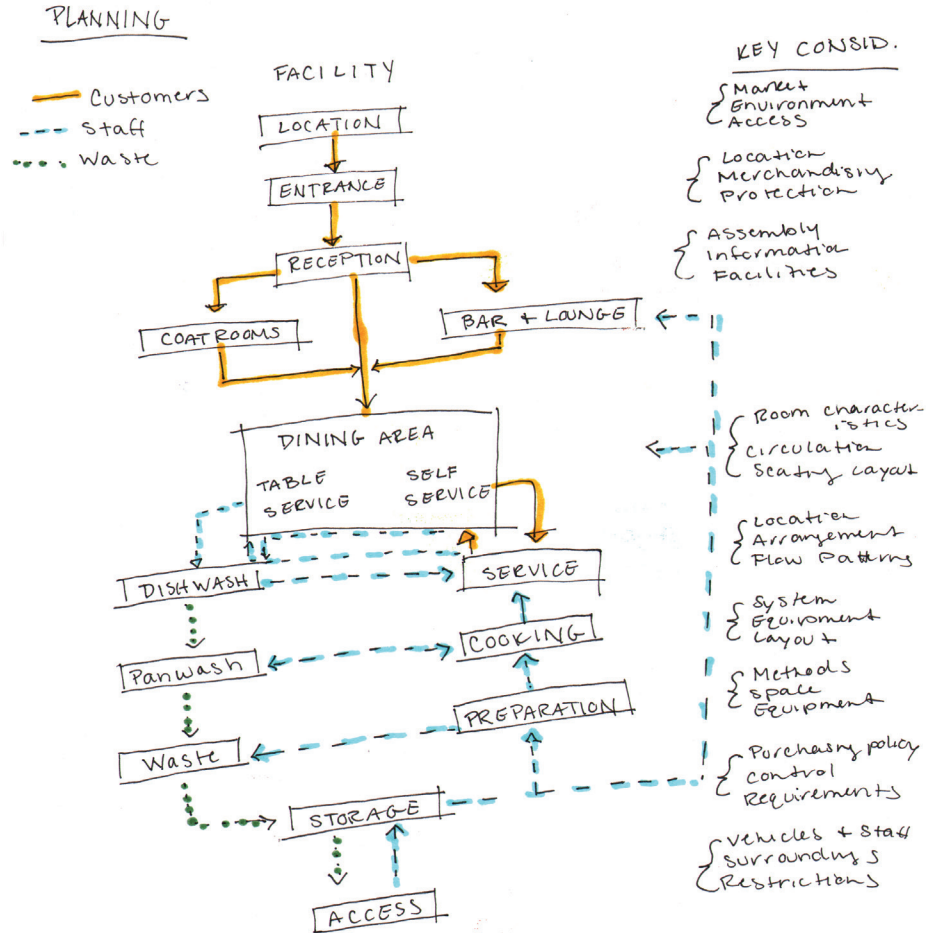 PLANNING
Customers
Staff
Waste
FACILITY
LOCATION
ENTRANCE
RECEPTION
COATROOMS
BAR + LOUNGE
DINING AREA
TABLE SERVICE
SELF SERVICE
DISHWASH
SERVICE
Panwash
COOKING
PREPARATION
Waste
STORAGE
ACCESS
KEY CONSID.
Market
Environment
Access
Location
Merchandisng
Protection
Assembly
Information
Facilities
Room character-
istics
Circulation
Seating Layout
Location
Arrangement
Flow Patterns
System
Equipment
Layout
Methods
Space
Equipment
Purchasing policy
Control
Requirements
Vehicles + Staff
Surroundings
Restrictions